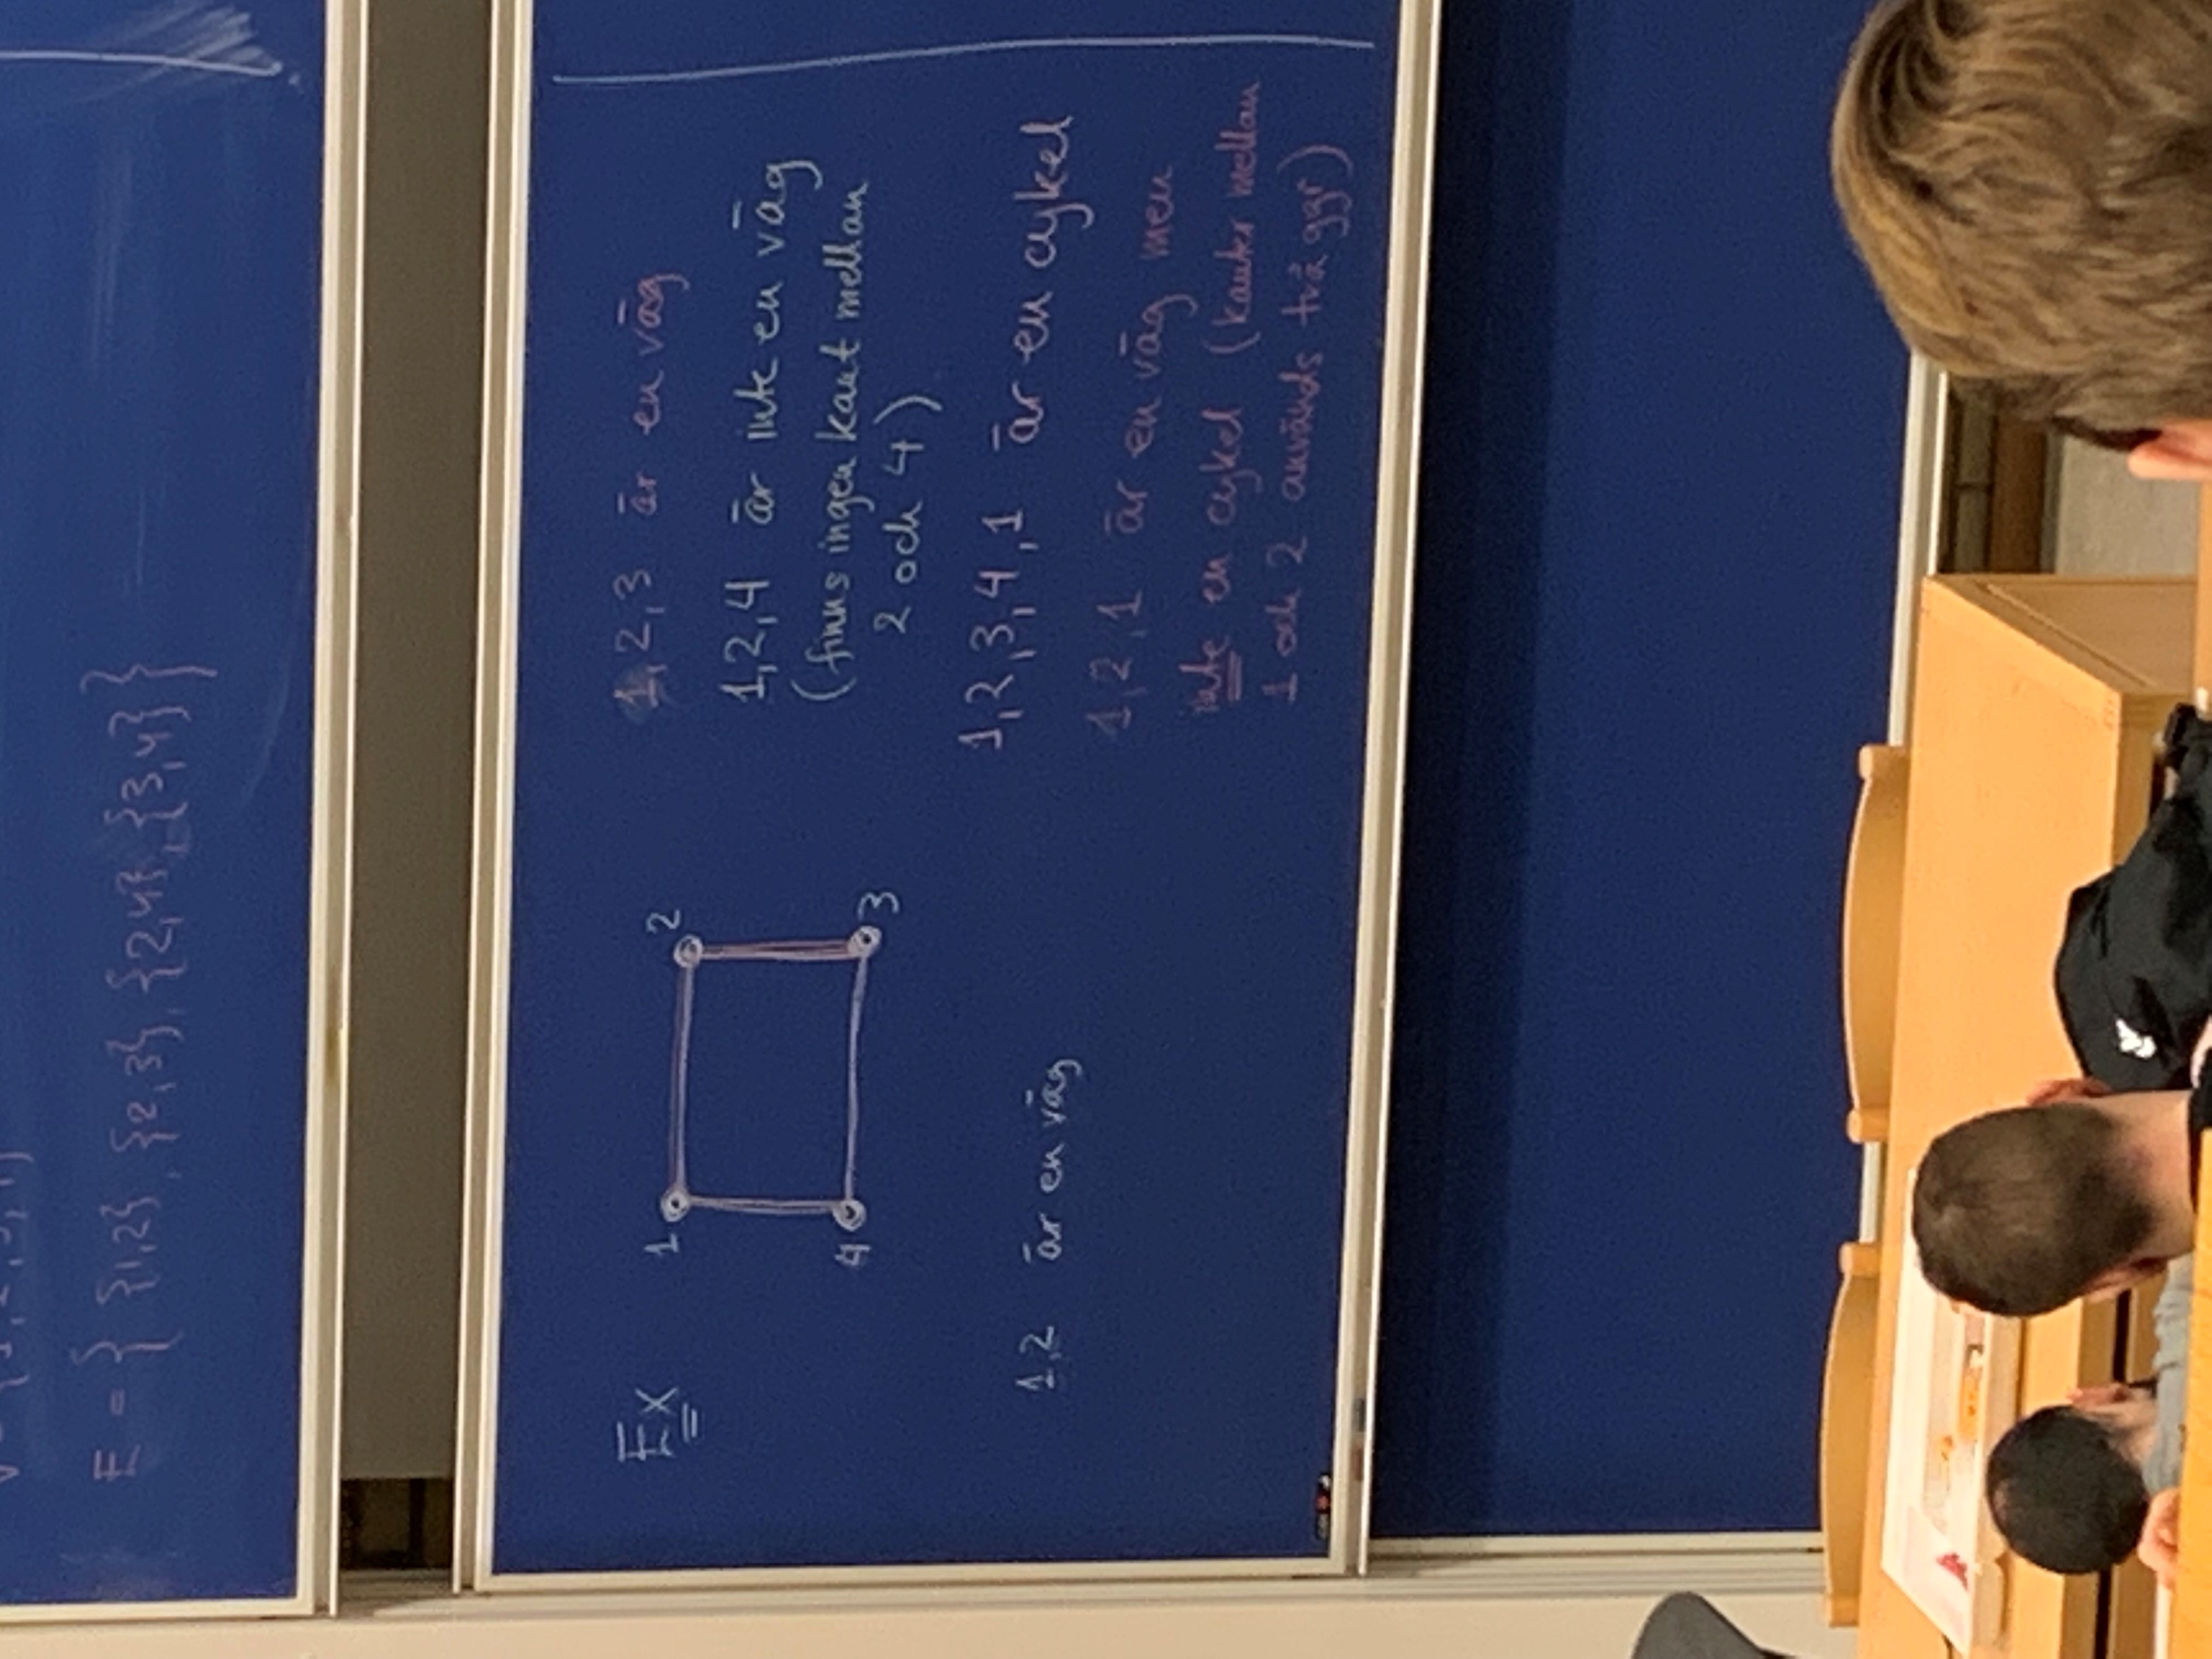 E = { {1,2}, {2,3}, {2,4}, {3,4} }
Ex
1 2
4 3
1,2 är en väg
1,2,3 är en väg
1,2,4 är inte en väg
(finns ingen kant mellan
2 och 4)
1,2,3,4,1 är en cykel
1,2,1 är en väg men
inte en cykel (kanter mellan
1 och 2 används två ggr)